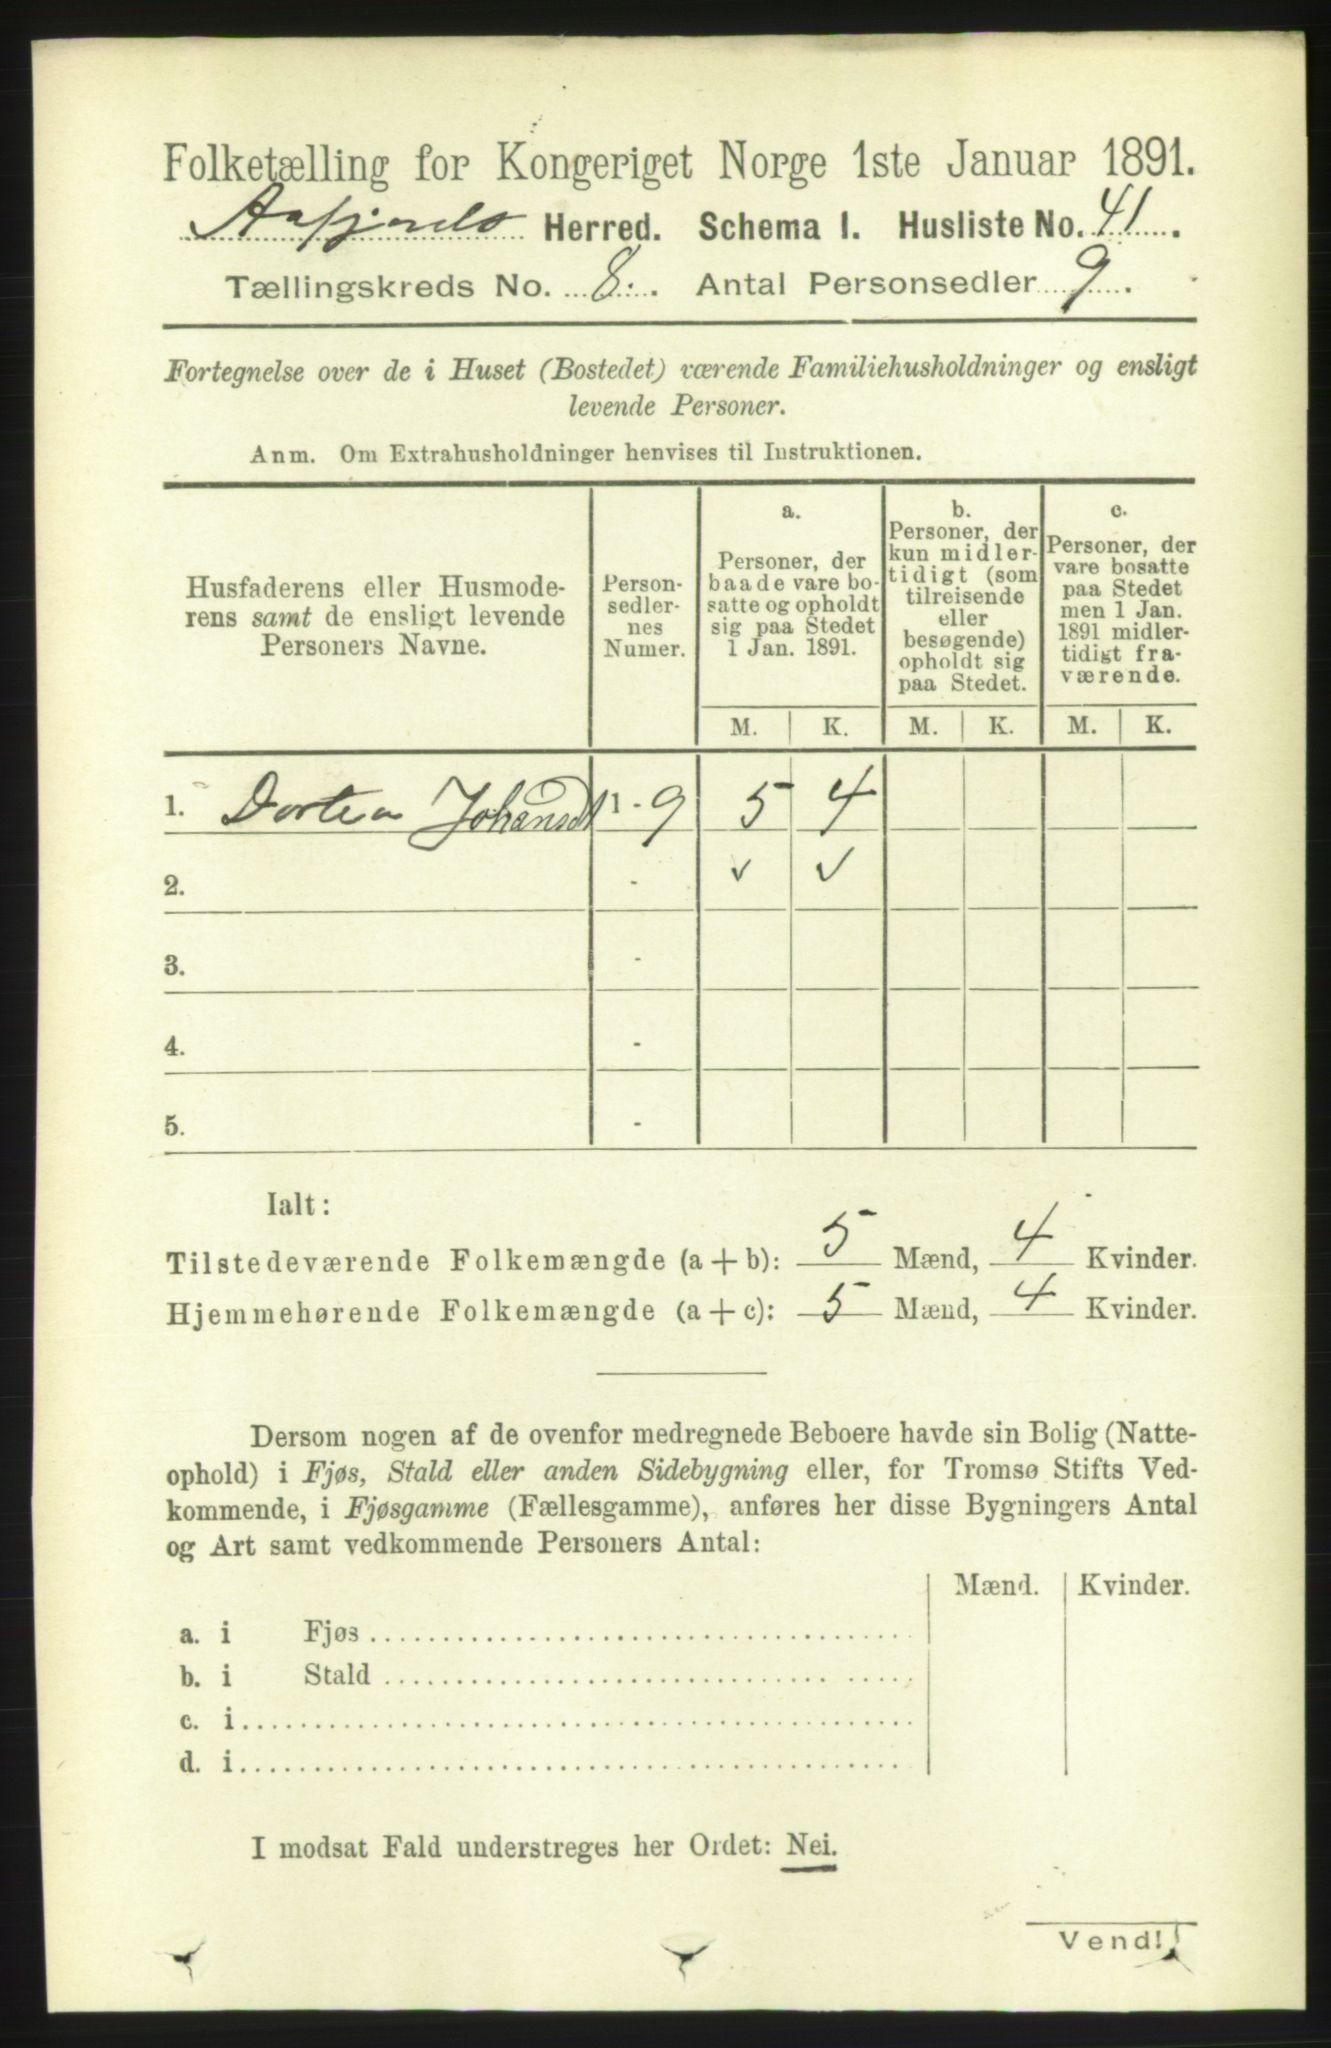 Folketælling for Kongeriget Norge 1ste Januar 1891.
Aafjords Herred. Schema I. Husliste No. 41.
Tællingskreds No. 8. Antal Personsedler 9.
Fortegnelse over de i Huset (Bostedet) værende Familiehusholdninger og ensligt
levende Personer.
Anm. Om Extrahusholdninger henvises til Instruktionen.
Husfaderens eller Husmode-
rens samt de ensligt levende
Personers Navne.
Person-
sedler-
nes
Numer.
a.
Personer, der
baade vare bo-
satte og opholdt
sig paa Stedet
1 Jan. 1891.
b.
Personer, der
kun midler-
tidigt (som
tilreisende
eller
besøgende)
opholdt sig
paa Stedet.
c.
Personer, der
vare bosatte
paa Stedet
men 1 Jan.
1891 midler-
tidigt fra-
værende.
M. K. M. K. M. K.
1. Dortea Johansdt 1 - 9 5 4
2. - ✓ ✓
3. -
4. -
5. -
Ialt:
Tilstedeværende Folkemængde (a + b): 5 Mænd, 4 Kvinder.
Hjemmehørende Folkemængde (a + c): 5 Mænd, 4 Kvinder.
Dersom nogen af de ovenfor medregnede Beboere havde sin Bolig (Natte-
ophold) i Fjøs, Stald eller anden Sidebygning eller, for Tromsø Stifts Ved-
kommende, i Fjøsgamme (Fællesgamme), anføres her disse Bygningers Antal
og Art samt vedkommende Personers Antal:
Mænd. Kvinder.
a. i Fjøs
b. i Stald
c. i
d. i
I modsat Fald understreges her Ordet: Nei.
Vend!